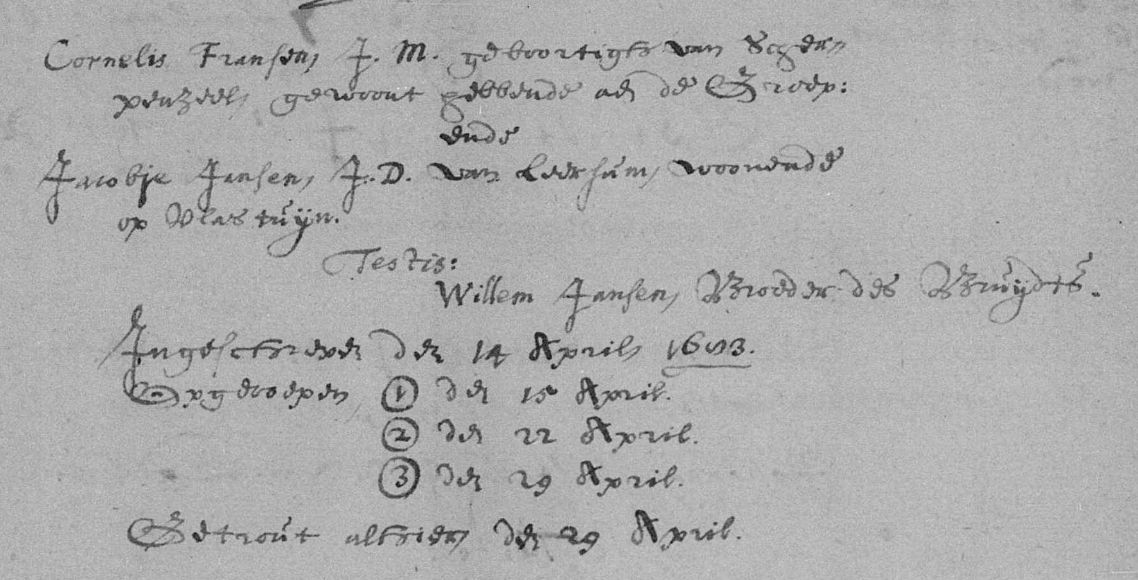 Cornelis Fransen, J. M. geboortigh van Scher-
penzeel, gewoont hebbende aen de Groep:
ende
Jacobje Jansen, J. D. van Leersum, woonende
op Vlastuijn.
Testis:
Willem Jansen, Broeder des Bruijdts.
Ingeschreven den 14 April, 1683.
Opgeroepen, 1 den 15 April.
2 den 22 April.
3 den 29 April.
Getrout alhier, den 29 April.